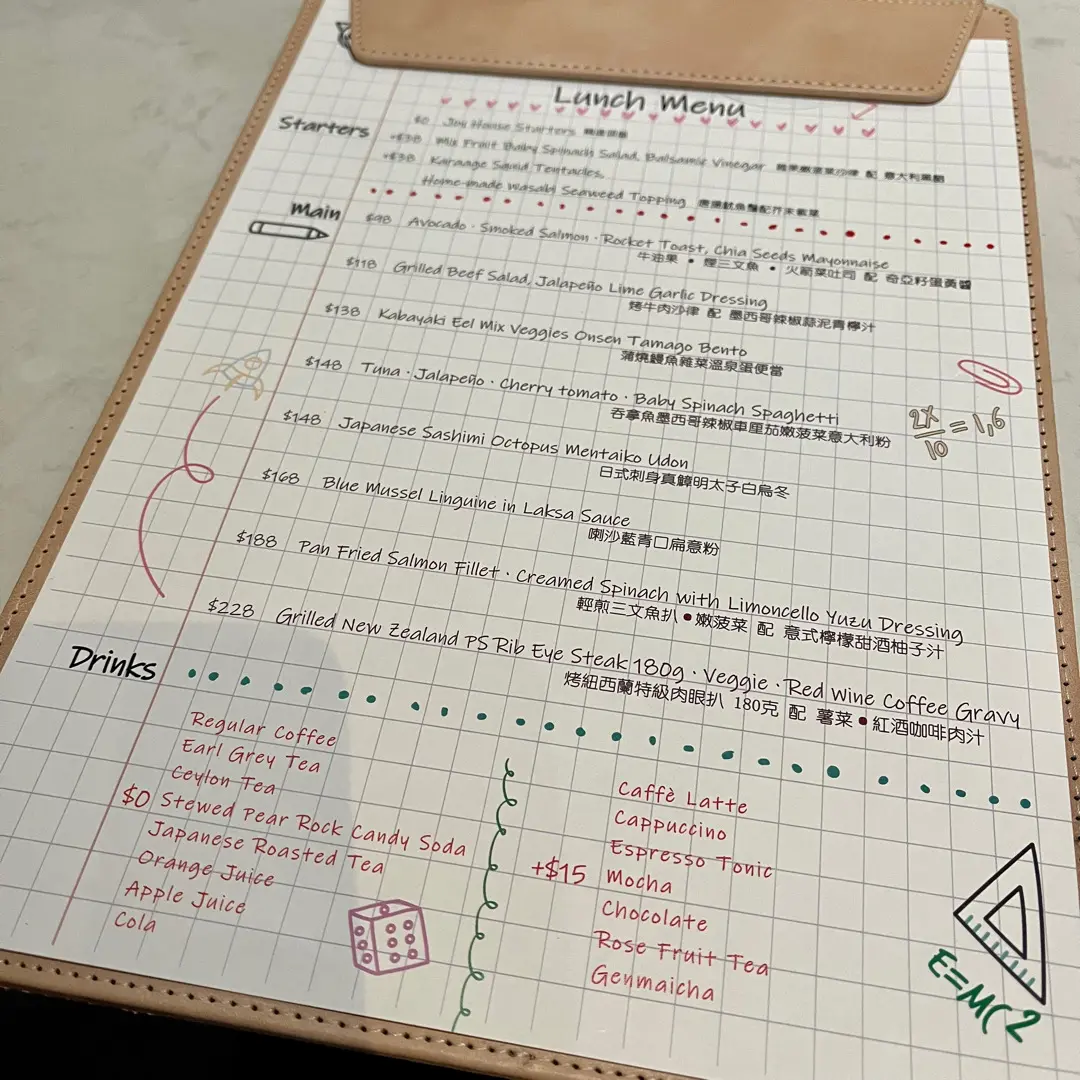 Lunch Menu
Starters
$0 Joy House Starters 精選頭盤
+$38 Mix Fruit Baby Spinach Salad, Balsamic Vinegar 雜果嫩菠菜沙律 配 意大利黑醋
+$38 Karaage Squid Tentacles,
Home-made Wasabi Seaweed Topping 唐揚魷魚鬚配芥末紫菜
Main
$98 Avocado · Smoked Salmon · Rocket Toast, Chia Seeds Mayonnaise
牛油果 • 煙三文魚 • 火箭菜吐司 配 奇亞籽蛋黃醬
$118 Grilled Beef Salad, Jalapeño Lime Garlic Dressing
烤牛肉沙律 配 墨西哥辣椒蒜泥青檸汁
$138 Kabayaki Eel Mix Veggies Onsen Tamago Bento
蒲燒鰻魚雜菜溫泉蛋便當
$148 Tuna · Jalapeño · Cherry tomato · Baby Spinach Spaghetti
吞拿魚墨西哥辣椒車厘茄嫩菠菜意大利粉
2X/10 = 1,6
$148 Japanese Sashimi Octopus Mentaiko Udon
日式刺身真鱆明太子白烏冬
$168 Blue Mussel Linguine in Laksa Sauce
喇沙藍青口扁意粉
$188 Pan Fried Salmon Fillet · Creamed Spinach with Limoncello Yuzu Dressing
輕煎三文魚扒 • 嫩菠菜 配 意式檸檬甜酒柚子汁
$228 Grilled New Zealand PS Rib Eye Steak 180g · Veggie · Red Wine Coffee Gravy
烤紐西蘭特級肉眼扒 180克 配 薯菜 • 紅酒咖啡肉汁
Drinks
Regular Coffee
Earl Grey Tea
Ceylon Tea
$0 Stewed Pear Rock Candy Soda
Japanese Roasted Tea
Orange Juice
Apple Juice
Cola
Caffè Latte
Cappuccino
Espresso Tonic
+$15 Mocha
Chocolate
Rose Fruit Tea
Genmaicha
E=MC2